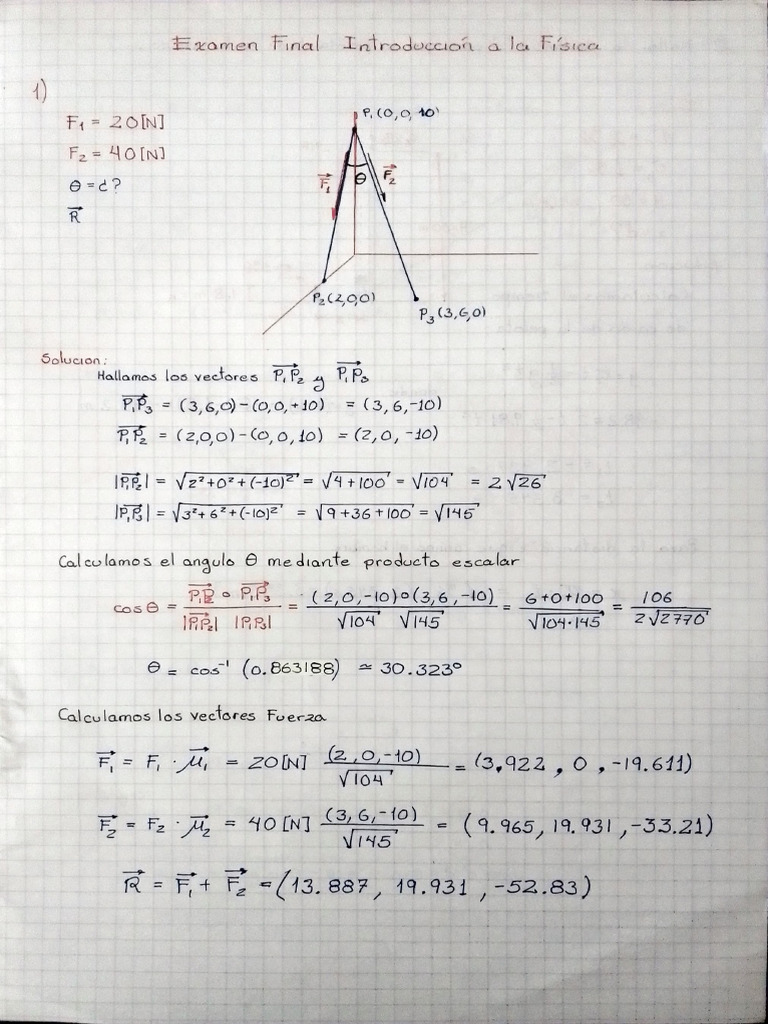 Examen Final Introducción a la Física
1)
F₁ = 20[N]
F₂ = 40[N]
θ = ¿?
R⃗
P₁(0,0,10)
F⃗₁ θ F⃗₂
P₂(2,0,0)
P₃(3,6,0)
Solucion:
Hallamos los vectores P₁P₂⃗ y P₁P₃⃗
P₁P₃⃗ = (3,6,0)-(0,0,+10) = (3,6,-10)
P₁P₂⃗ = (2,0,0)-(0,0,10) = (2,0,-10)
|P₁P₂⃗| = √(2²+0²+(-10)²) = √(4+100) = √104 = 2√26
|P₁P₃⃗| = √(3²+6²+(-10)²) = √(9+36+100) = √145
Calculamos el angulo θ mediante producto escalar
cos θ = (P₁P₂⃗ ∘ P₁P₃⃗)/(|P₁P₂⃗| |P₁P₃|) = ((2,0,-10)∘(3,6,-10))/(√104 √145) = (6+0+100)/√(104·145) = 106/(2√2770)
θ = cos⁻¹ (0.863188) ≃ 30.323°
Calculamos los vectores Fuerza
F⃗₁ = F₁ · μ⃗₁ = 20[N] (2,0,-10)/√104 = (3.922, 0, -19.611)
F⃗₂ = F₂ · μ⃗₂ = 40[N] (3,6,-10)/√145 = (9.965, 19.931, -33.21)
R⃗ = F⃗₁ + F⃗₂ = (13.887, 19.931, -52.83)